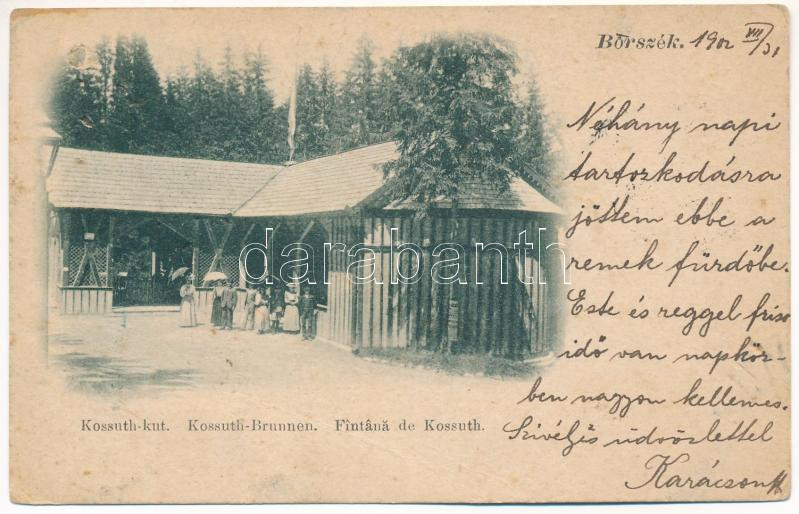 Borszék. 1902 VII/31
Néhány napi
tartozkodásra
jöttem ebbe a
remek fürdőbe.
Este és reggel friss
idő van napköz-
ben nagyon kellemes.
Szivélyes üdvözlettel
Karácson
darabanth
Kossuth-kut. Kossuth-Brunnen. Fîntână de Kossuth.